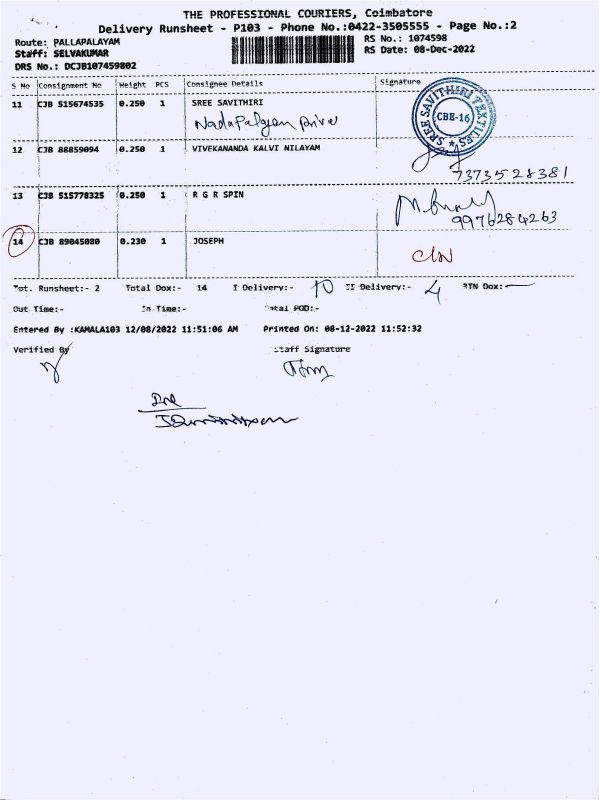 THE PROFESSIONAL COURIERS, Coimbatore
Delivery Runsheet - P103 - Phone No.:0422-3505555 - Page No.:2
Route: PALLAPALAYAM
RS No.: 1074598
Staff: SELVAKUMAR
RS Date: 08-Dec-2022
DRS No.: DCJB107459802
S No Consignment No Weight PCS Consignee Details Signature
11 CJB 515674535 0.250 1 SREE SAVITHIRI
SREE SAVITHIRI TEXTILES
CBE-16
12 CJB 88859094 0.250 1 VIVEKANANDA KALVI NILAYAM
7373528381
13 CJB 515778325 0.250 1 R G R SPIN
9976284263
14 CJB 89045080 0.230 1 JOSEPH
Tot. Runsheet:- 2 Total Dox:- 14 I Delivery:- 10 II Delivery:- 4 RTN Dox:-
Out Time:- In Time:- Total POD:-
Entered By :KAMALA103 12/08/2022 11:51:06 AM Printed On: 08-12-2022 11:52:32
Verified By Staff Signature